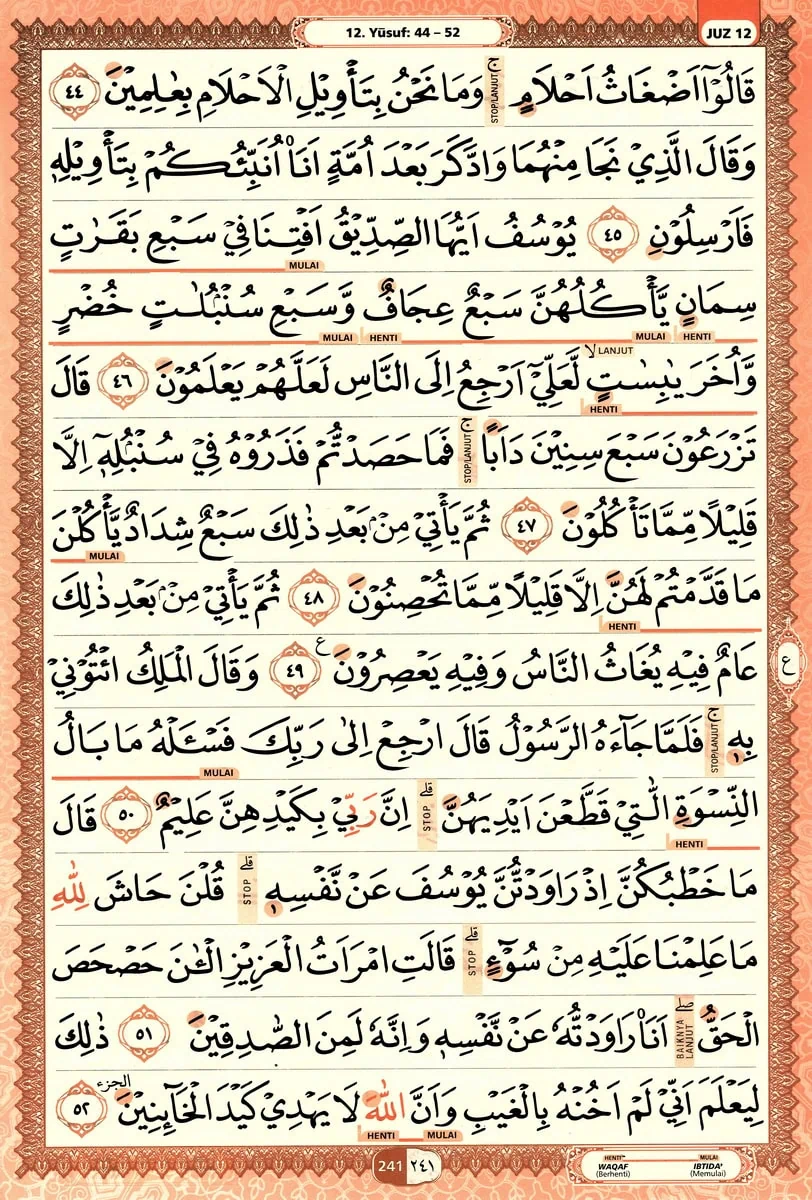 12. Yūsuf: 44 – 52
JUZ 12
قَالُوْٓا اَضْغَاثُ اَحْلَامٍ ۚ وَمَا نَحْنُ بِتَأْوِيْلِ الْاَحْلَامِ بِعٰلِمِيْنَ ٤٤
STOP/LANJUT
وَقَالَ الَّذِيْ نَجَا مِنْهُمَا وَادَّكَرَ بَعْدَ اُمَّةٍ اَنَا۠ اُنَبِّئُكُمْ بِتَأْوِيْلِهٖ
فَاَرْسِلُوْنِ ٤٥ يُوْسُفُ اَيُّهَا الصِّدِّيْقُ اَفْتِنَا فِيْ سَبْعِ بَقَرٰتٍ
MULAI
سِمَانٍ يَّأْكُلُهُنَّ سَبْعٌ عِجَافٌ وَّسَبْعِ سُنْۢبُلٰتٍ خُضْرٍ
HENTI MULAI HENTI MULAI
وَّاُخَرَ يٰبِسٰتٍ ۙ لَّعَلِّيْٓ اَرْجِعُ اِلَى النَّاسِ لَعَلَّهُمْ يَعْلَمُوْنَ ٤٦ قَالَ
LANJUT
HENTI
تَزْرَعُوْنَ سَبْعَ سِنِيْنَ دَاَبًا ۚ فَمَا حَصَدْتُّمْ فَذَرُوْهُ فِيْ سُنْۢبُلِهٖٓ اِلَّا
STOP/LANJUT
قَلِيْلًا مِّمَّا تَأْكُلُوْنَ ٤٧ ثُمَّ يَأْتِيْ مِنْۢ بَعْدِ ذٰلِكَ سَبْعٌ شِدَادٌ يَّأْكُلْنَ
MULAI
مَا قَدَّمْتُمْ لَهُنَّ اِلَّا قَلِيْلًا مِّمَّا تُحْصِنُوْنَ ٤٨ ثُمَّ يَأْتِيْ مِنْۢ بَعْدِ ذٰلِكَ
HENTI
عَامٌ فِيْهِ يُغَاثُ النَّاسُ وَفِيْهِ يَعْصِرُوْنَ ࣖ ٤٩ وَقَالَ الْمَلِكُ ائْتُوْنِيْ
ع
بِهٖ ۚ فَلَمَّا جَاۤءَهُ الرَّسُوْلُ قَالَ ارْجِعْ اِلٰى رَبِّكَ فَسْـَٔلْهُ مَا بَالُ
STOP/LANJUT
MULAI
النِّسْوَةِ الّٰتِيْ قَطَّعْنَ اَيْدِيَهُنَّ ۗ اِنَّ رَبِّيْ بِكَيْدِهِنَّ عَلِيْمٌ ٥٠ قَالَ
STOP
HENTI
مَا خَطْبُكُنَّ اِذْ رَاوَدْتُّنَّ يُوْسُفَ عَنْ نَّفْسِهٖ ۗ قُلْنَ حَاشَ لِلّٰهِ
STOP
مَا عَلِمْنَا عَلَيْهِ مِنْ سُوْۤءٍ ۗ قَالَتِ امْرَاَتُ الْعَزِيْزِ الْـٰٔنَ حَصْحَصَ
STOP
الْحَقُّ ۖ اَنَا۠ رَاوَدْتُّهٗ عَنْ نَّفْسِهٖ وَاِنَّهٗ لَمِنَ الصّٰدِقِيْنَ ٥١ ذٰلِكَ
BAIKNYA LANJUT
لِيَعْلَمَ اَنِّيْ لَمْ اَخُنْهُ بِالْغَيْبِ وَاَنَّ اللّٰهَ لَا يَهْدِيْ كَيْدَ الْخَاۤىِٕنِيْنَ ٥٢
الجزء
MULAI HENTI
241 ٢٤١
HENTI MULAI
WAQAF (Berhenti)
IBTIDA' (Memulai)